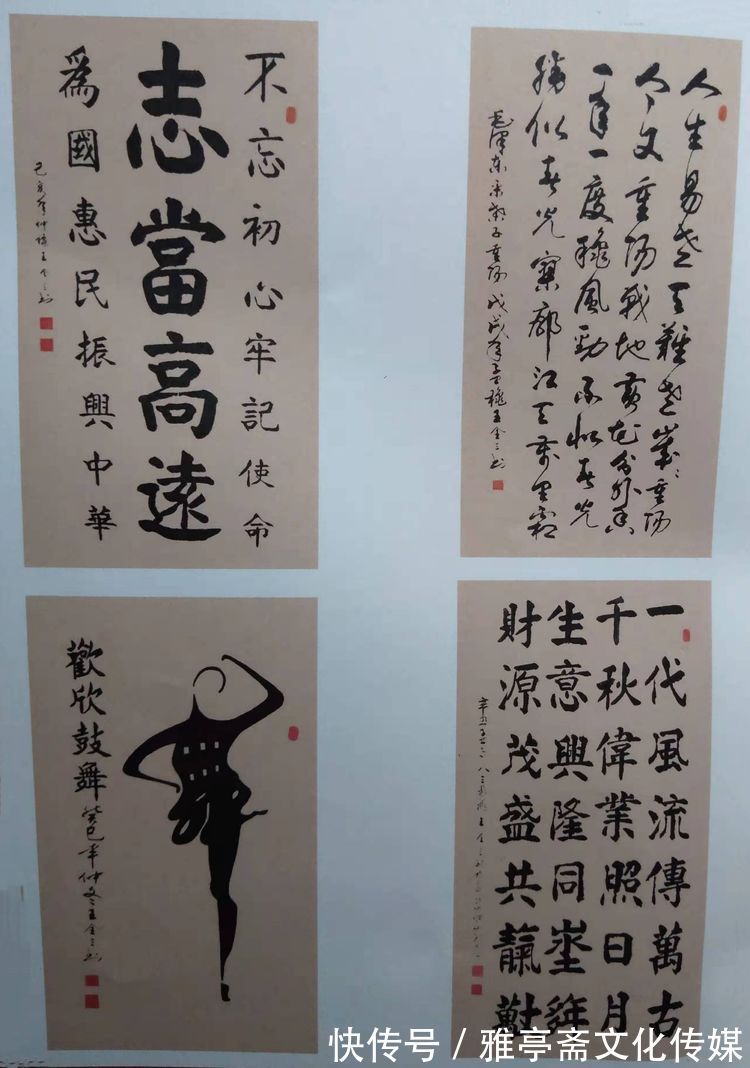 不忘初心牢記使命
志當高遠
爲國惠民振興中華
己亥年仲王金三书
人生易老天難老歲〻重陽
今又重陽戰地黃花分外香
一年一度穐風勁不似春光
勝似春光寥廓江天萬里霜
毛澤东采桑子重陽戊戌年孟穐王金三书
歡欣鼓舞
癸巳年仲冬王金三书
一代風流傳萬古
千秋偉業照日月
生意興隆同
財源茂盛共
快传号 / 雅亭斋文化传媒